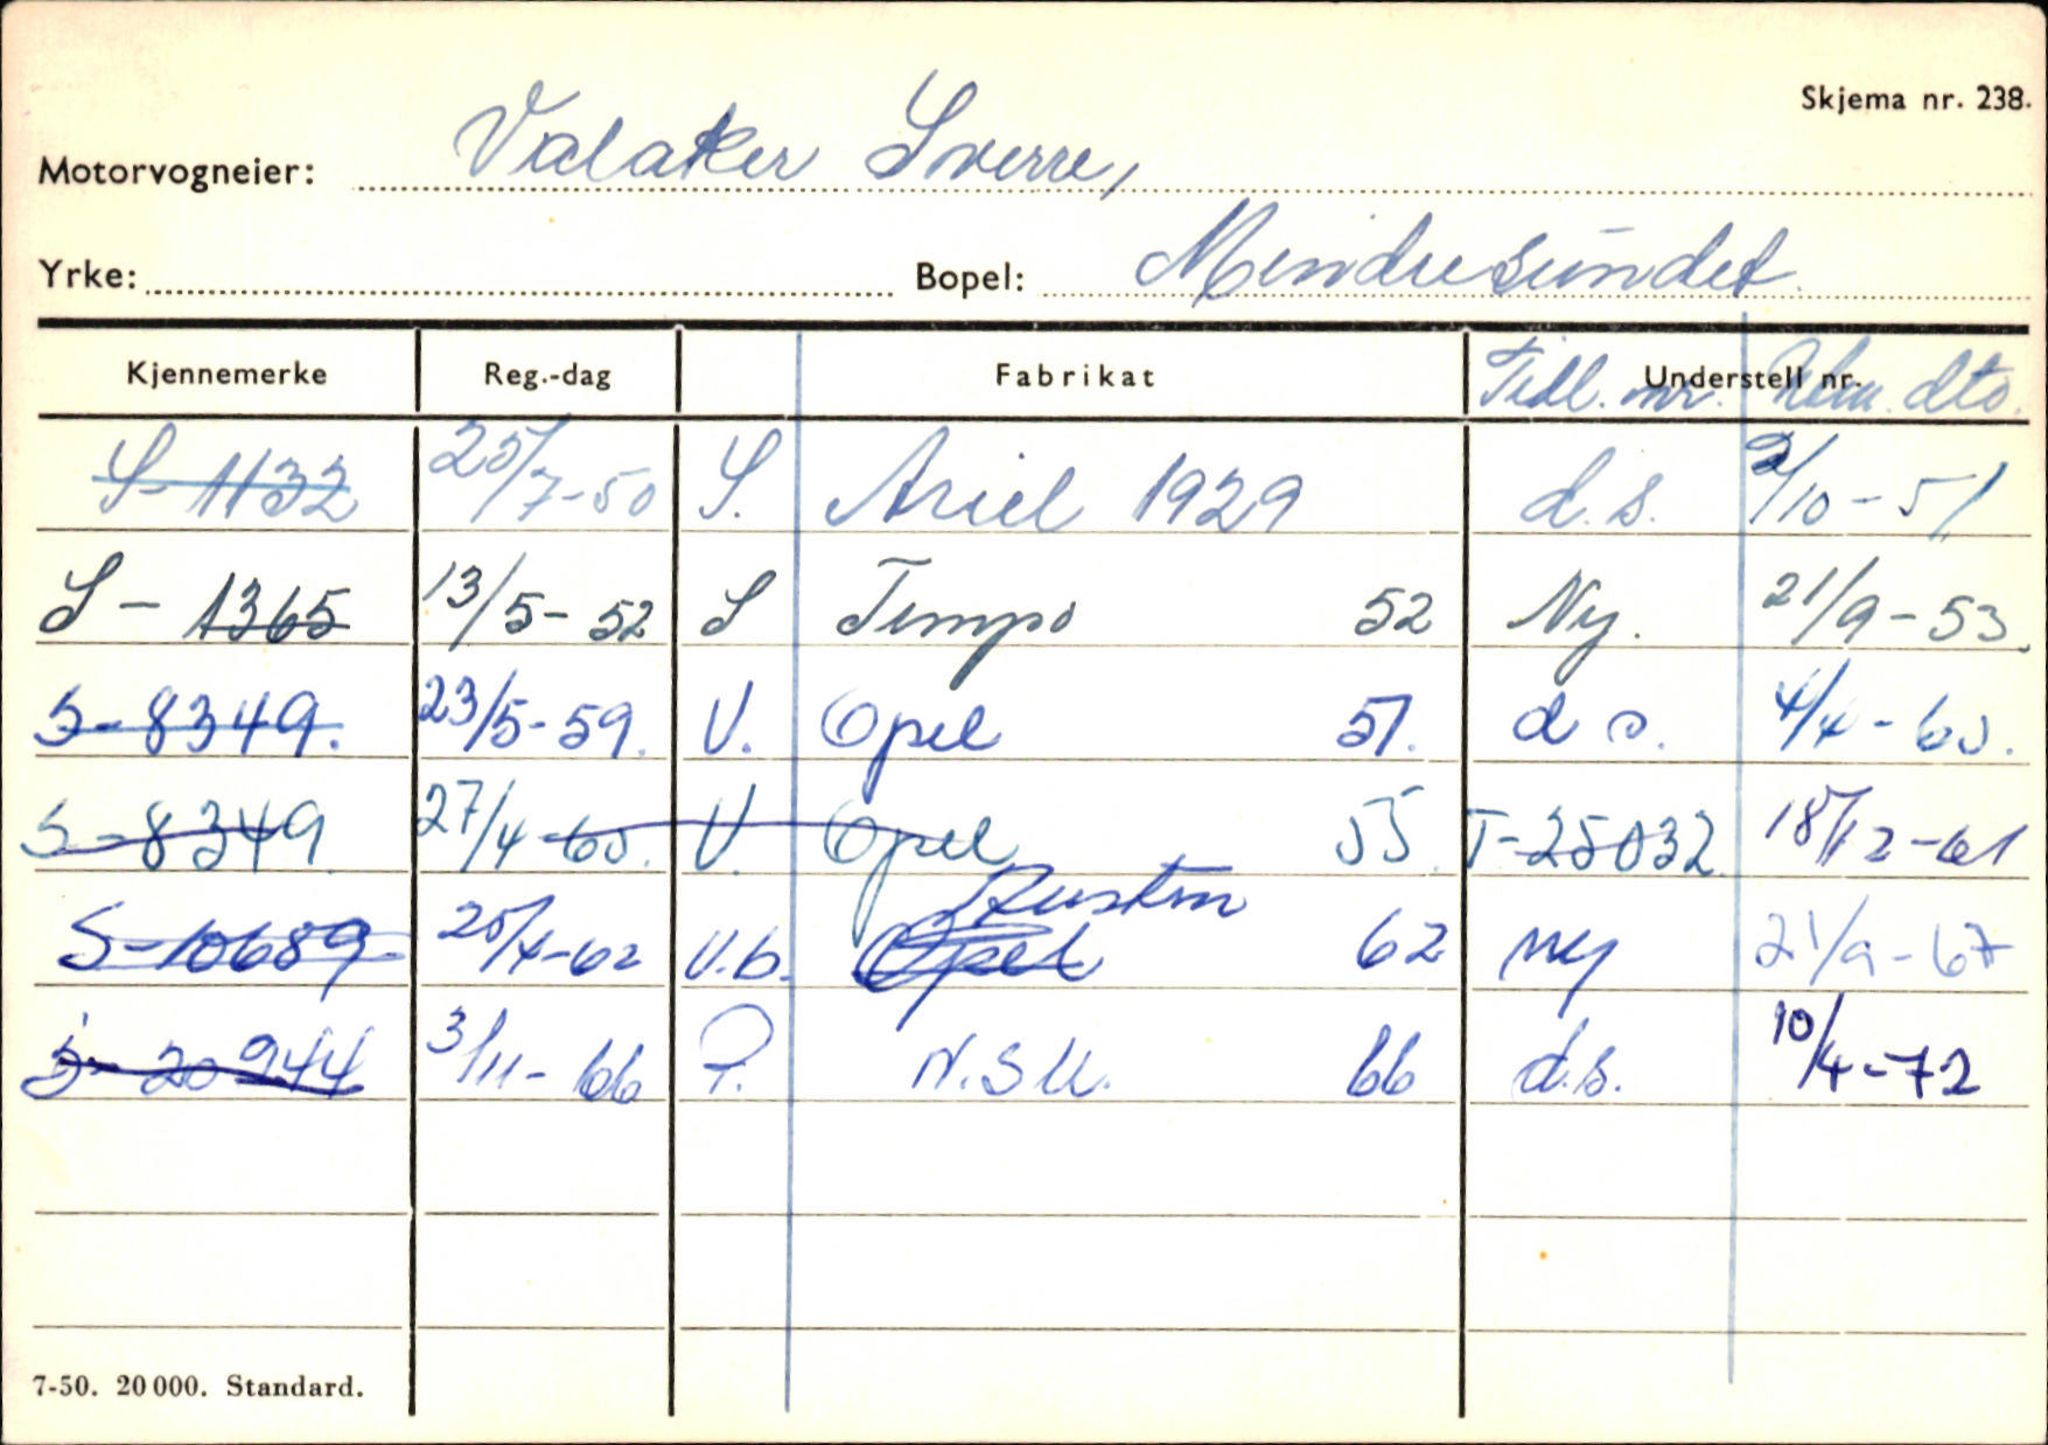 Skjema nr. 238.
Motorvogneier: Valaker Sverre,
Yrke: Bopel: Mindresundet
Kjennemerke Reg.-dag Fabrikat Understell nr. Tidl. nr. dto.
S-1132 25/7-50 S. Ariel 1929 d.s. 2/10-51
S-1365 13/5-52 S Tempo 52 Ny. 21/9-53
S-8349. 23/5-59. V. Opel 51. d s. 4/4-60.
S-8349 27/4-60. V. Opel 55. T-25032 18/12-61
Austin
S-10689 25/4-62 V.b. Opel 62 ny 21/9-67
S-20944 3/11-66 P. N.S.U. 66 d.s. 10/4-72
7-50. 20 000. Standard.